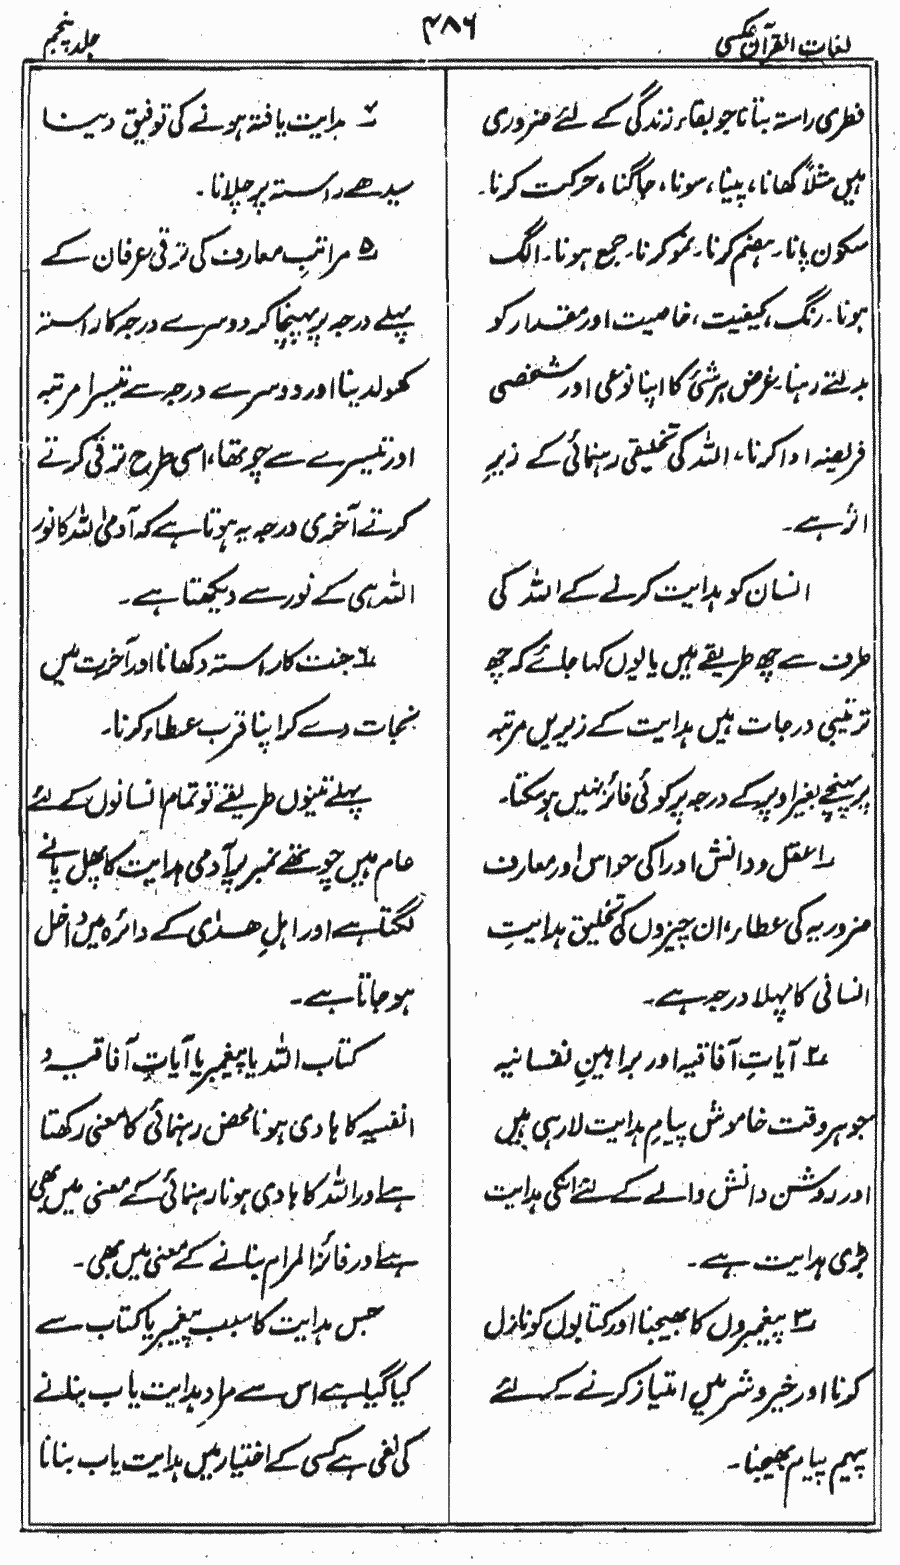 لغات القرآن عکسی
۴۸۶
جلد پنجم
فطری راستہ بتانا جو بقاء زندگی کے لئے ضروری
ہیں مثلاً کھانا، پینا، سونا، جاگنا، حرکت کرنا۔
سکون پانا۔ ہضم کرنا۔ نمو کرنا۔ جمع ہونا۔ الگ
ہونا۔ رنگ، کیفیت، خاصیت اور مقدار کو
بدلتے رہنا۔ غرض ہر شئ کا اپنا نوعی اور شخصی
فریضہ ادا کرنا، اللہ کی تخلیقی رہنمائی کے زیرِ
اثر ہے۔
انسان کو ہدایت کرنے کے اللہ کی
طرف سے چھ طریقے ہیں یا یوں کہا جائے کہ چھ
ترتیبی درجات ہیں ہدایت کے زیریں مرتبہ
پر پہنچے بغیر اوپر کے درجہ پر کوئی فائز نہیں ہو سکتا۔
۱؎ عقل و دانش ادراکی حواس اور معارف
ضروریہ کی عطاء، ان چیزوں کی تخلیق ہدایتِ
انسانی کا پہلا درجہ ہے۔
۲؎ آیاتِ آفاقیہ اور براہینِ نفسانیہ
جو ہر وقت خاموش پیامِ ہدایت لا رہی ہیں
اور روشن دانش والے کے لئے انکی ہدایت
بڑی ہدایت ہے۔
۳؎ پیغمبروں کا بھیجنا اور کتابوں کو نازل
کرنا اور خیر و شر میں امتیاز کرنے کے لئے
پیہم پیام بھیجنا۔
۴؎ ہدایت یافتہ ہونے کی توفیق دینا
سیدھے راستہ پر چلانا۔
۵؎ مراتبِ معارف کی ترقی عرفان کے
پہلے درجہ پر پہنچا کر دوسرے درجہ کا راستہ
کھولدینا اور دوسرے درجہ سے تیسرا مرتبہ
اور تیسرے سے چوتھا، اسی طرح ترقی کرتے
کرتے آخری درجہ یہ ہوتا ہے کہ آدمی اللہ کا نور
اللہ ہی کے نور سے دیکھتا ہے۔
۶؎ جنت کا راستہ دکھانا اور آخرت میں
نجات دے کر اپنا قرب عطاء کرنا۔
پہلے تینوں طریقے تو تمام انسانوں کے لئے
عام ہیں چوتھے نمبر پر آدمی ہدایت کا پھل پانے
لگتا ہے اور اہلِ ھدٰی کے دائرہ میں داخل
ہو جاتا ہے۔
کتاب اللہ یا پیغمبر یا آیات آفاقیہ و
انفسیہ کا ہادی ہونا محض رہنمائی کا معنی رکھتا
ہے اور اللہ کا ہادی ہونا رہنمائی کے معنی میں بھی
ہے اور فائز المرام بنانے کے معنی میں بھی۔
جس ہدایت کا سبب پیغمبر یا کتاب سے
کیا گیا ہے اس سے مراد ہدایت یاب بنانے
کی نفی ہے کسی کے اختیار میں ہدایت یاب بنانا